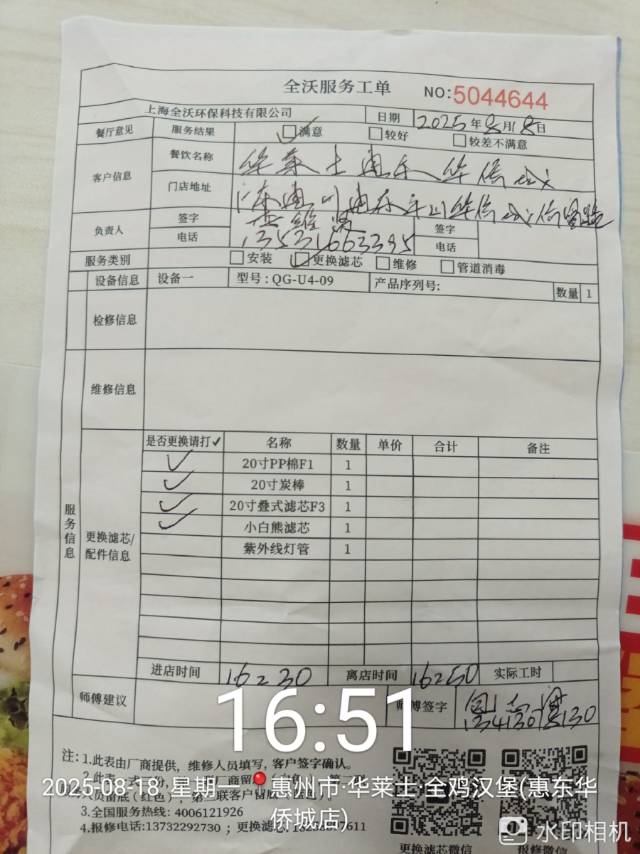 全沃服务工单 NO:5044644
上海全沃环保科技有限公司 日期 2025年8月18日
餐厅意见 服务结果 满意 较好 较差不满意
客户信息 餐饮名称 华莱士惠东华侨城
门店地址
负责人 签字 签字
电话 13531663395 电话
服务类别 安装 更换滤芯 维修 管道消毒
设备信息 设备一 型号:QG-U4-09 产品序列号: 数量 1
检修信息
维修信息
服务信息
更换滤芯/配件信息
是否更换请打✓ 名称 数量 单价 合计 备注
✓ 20寸PP棉F1 1
✓ 20寸炭棒 1
✓ 20寸叠式滤芯F3 1
✓ 小白熊滤芯 1
紫外线灯管 1
进店时间 16:30 离店时间 16:50 实际工时
师傅建议 师傅签字
16:51
注:1.此表由厂商提供，维修人员填写，客户签字确认。
2025-08-18 星期一 惠州市·华莱士·全鸡汉堡(惠东华
侨城店)
3.全国服务热线:4006121926
4.报修电话:13732292730 ;更换滤芯
更换滤芯微信 报修微信
水印相机